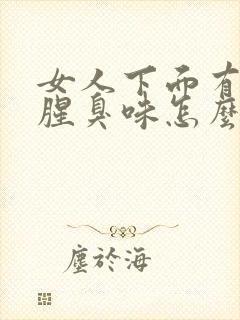 女人下面有
腥臭味怎麼
塵於海